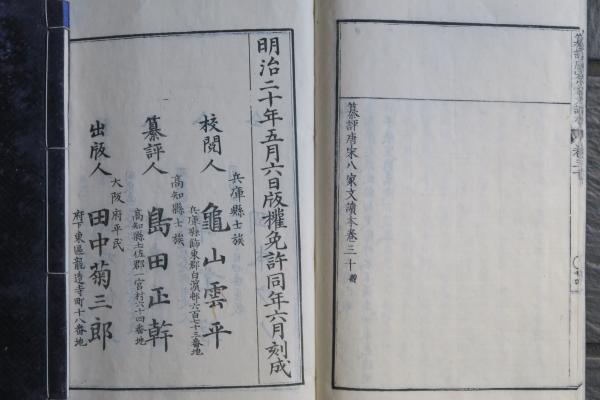 纂評唐宋八家文讀本卷三十
明治二十年五月六日版權免許同年六月刻成
兵庫縣士族
校閲人 龜山雲平
兵庫縣飾東郡白濱邨六百七十三番地
高知縣士族
纂評人 島田正幹
高知縣土佐郡一宮村六十四番地
大阪府平民
出版人 田中菊三郎
府下東區龍造寺町十八番地